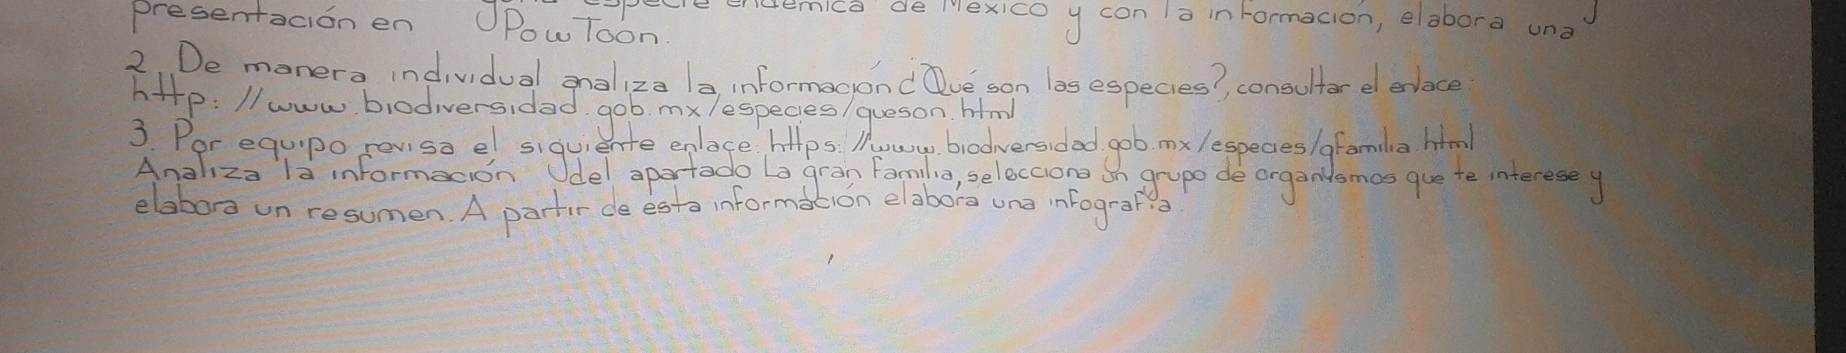 especie endémica de México y con la información, elabora una
presentación en PowToon.
2. De manera individual analiza la información ¿Qué son las especies?, consultar el enlace:
http://www.biodiversidad.gob.mx/especies/queson.html
3. Por equipo revisa el siguiente enlace: https://www.biodiversidad.gob.mx/especies/gfamilia.html
Analiza la información del apartado La gran familia, selecciona un grupo de organismos que te interese y
elabora un resumen. A partir de esta información elabora una infografía.